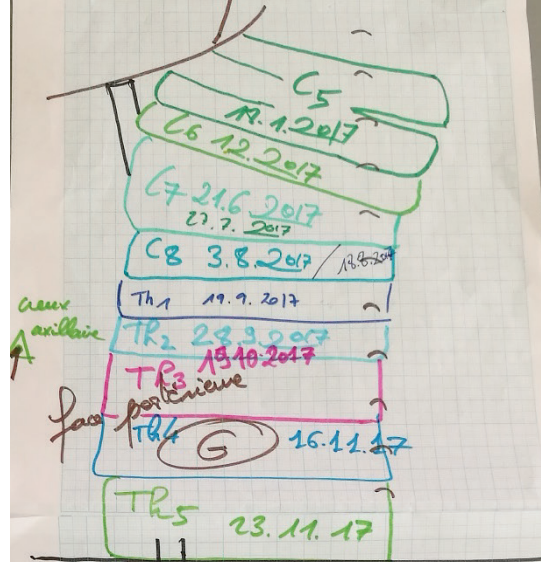 C5
19.1.2017
C6 12.2017
C7 21.6 2017
27.7. 2017
C8 3.8.2017 / 18.8.2017
Th1 19.9.2017
creux
axillaire
Th2 28.9.2017
Th3 19.10.2017
face postérieure
Th4 G 16.11.17
Th5 23.11.17